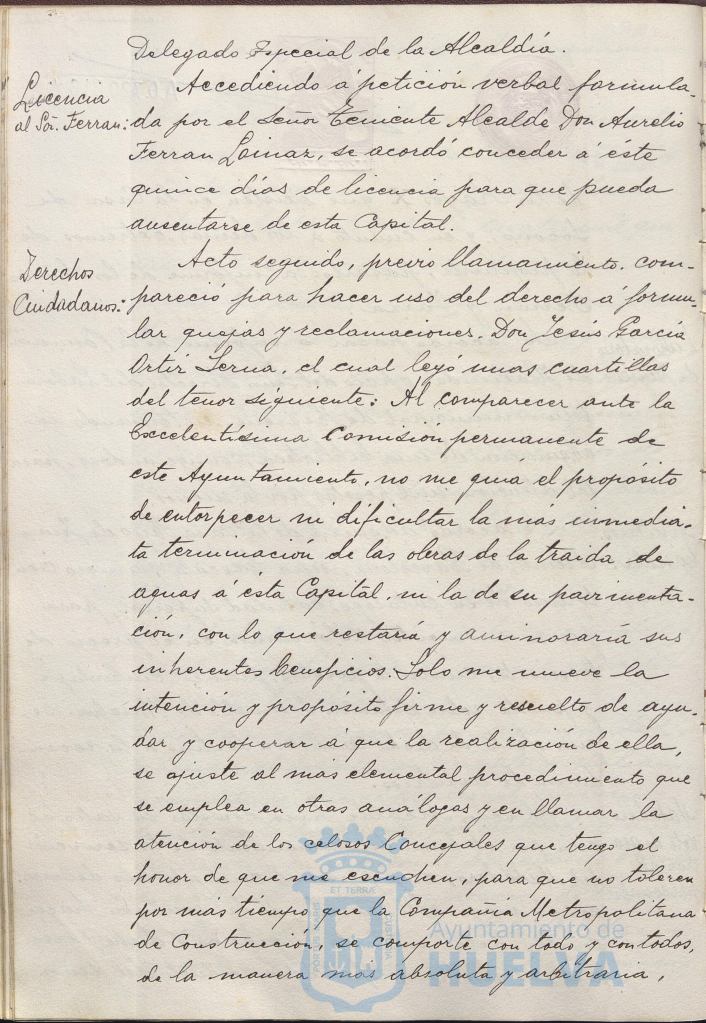 Delegado Especial de la Alcaldía.
Licencia
al Sor. Ferran:
Accediendo á petición verbal formula-
da por el Señor Teniente Alcalde Don Aurelio
Ferran Loinaz, se acordó conceder á éste
quince días de licencia para que pueda
ausentarse de esta Capital.
Derechos
Ciudadanos:
Acto seguido, previo llamamiento, com-
pareció para hacer uso del derecho á formu-
lar quejas y reclamaciones, Don Jesús García
Ortiz Serna, el cual leyó unas cuartillas
del tenor siguiente: Al comparecer ante la
Excelentísima Comisión permanente de
este Ayuntamiento, no me guia el propósito
de entorpecer ni dificultar la más inmedia-
ta terminación de las obras de la traida de
aguas á ésta Capital, ni la de su pavimenta-
ción, con lo que restaría y aminoraría sus
inherentes beneficios. Solo me mueve la
intención y propósito firme y resuelto de ayu-
dar y cooperar á que la realización de ella,
se ajuste al más elemental procedimiento que
se emplea en otras análogas y en llamar la
atención de los celosos Concejales que tengo el
honor de que me escuchen, para que no toleren
por más tiempo que la Compañía Metropolitana
de Construcción, se comporte con todo y con todos,
de la manera más absoluta y arbitraria,
ET TERRÆ
Ayuntamiento de
HUELVA